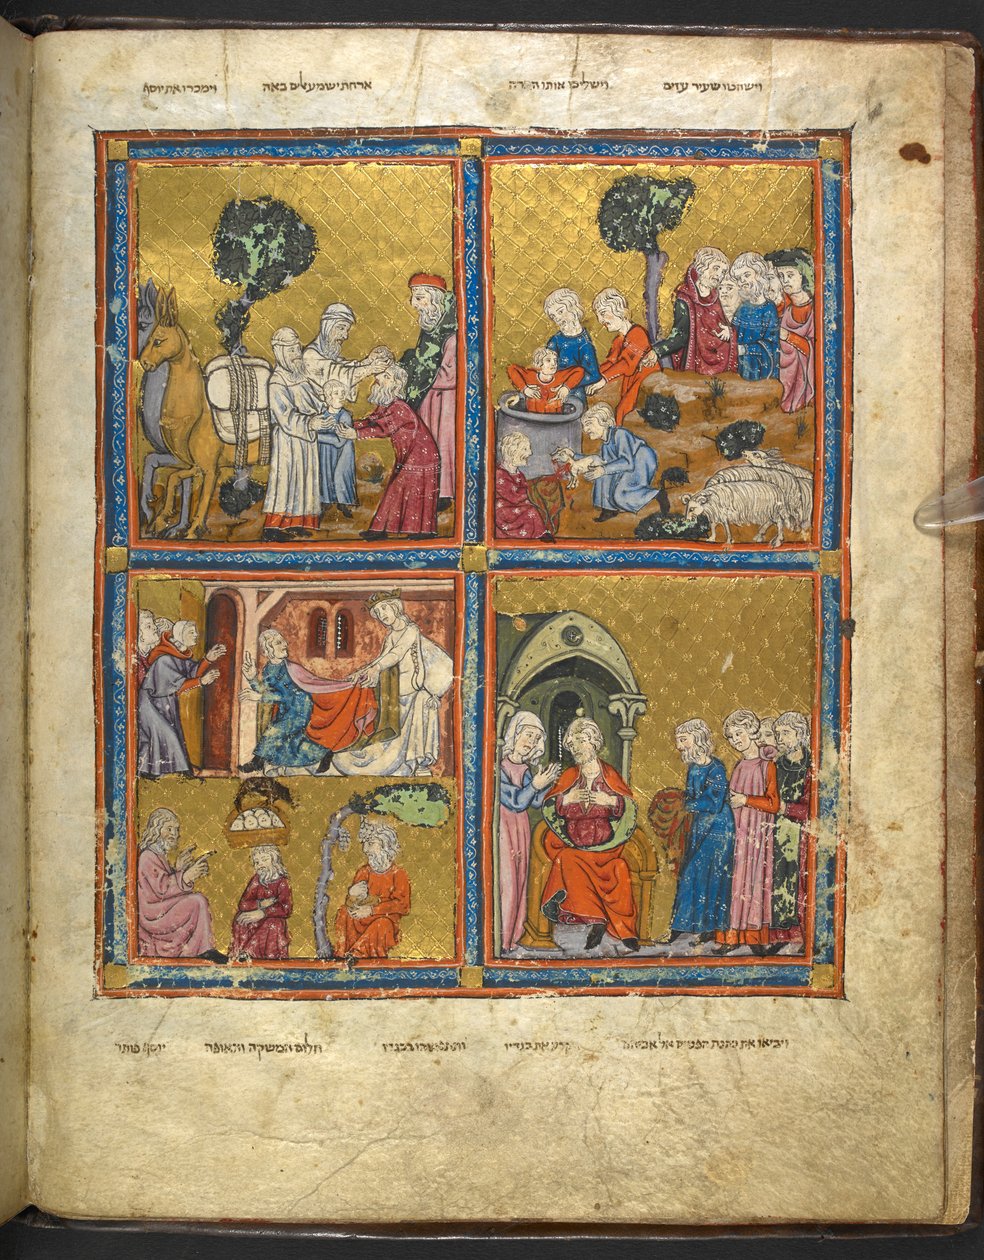 וישחטו שעיר עזים וישליכו אותו הבורה ארחת ישמעאלים באה וימכרו את יוסף
ויביאו את כתנת הפסים אל אביהם קרע את בגדיו ותתפשהו בבגדו חלום המשקה והאופה יוסף פותר